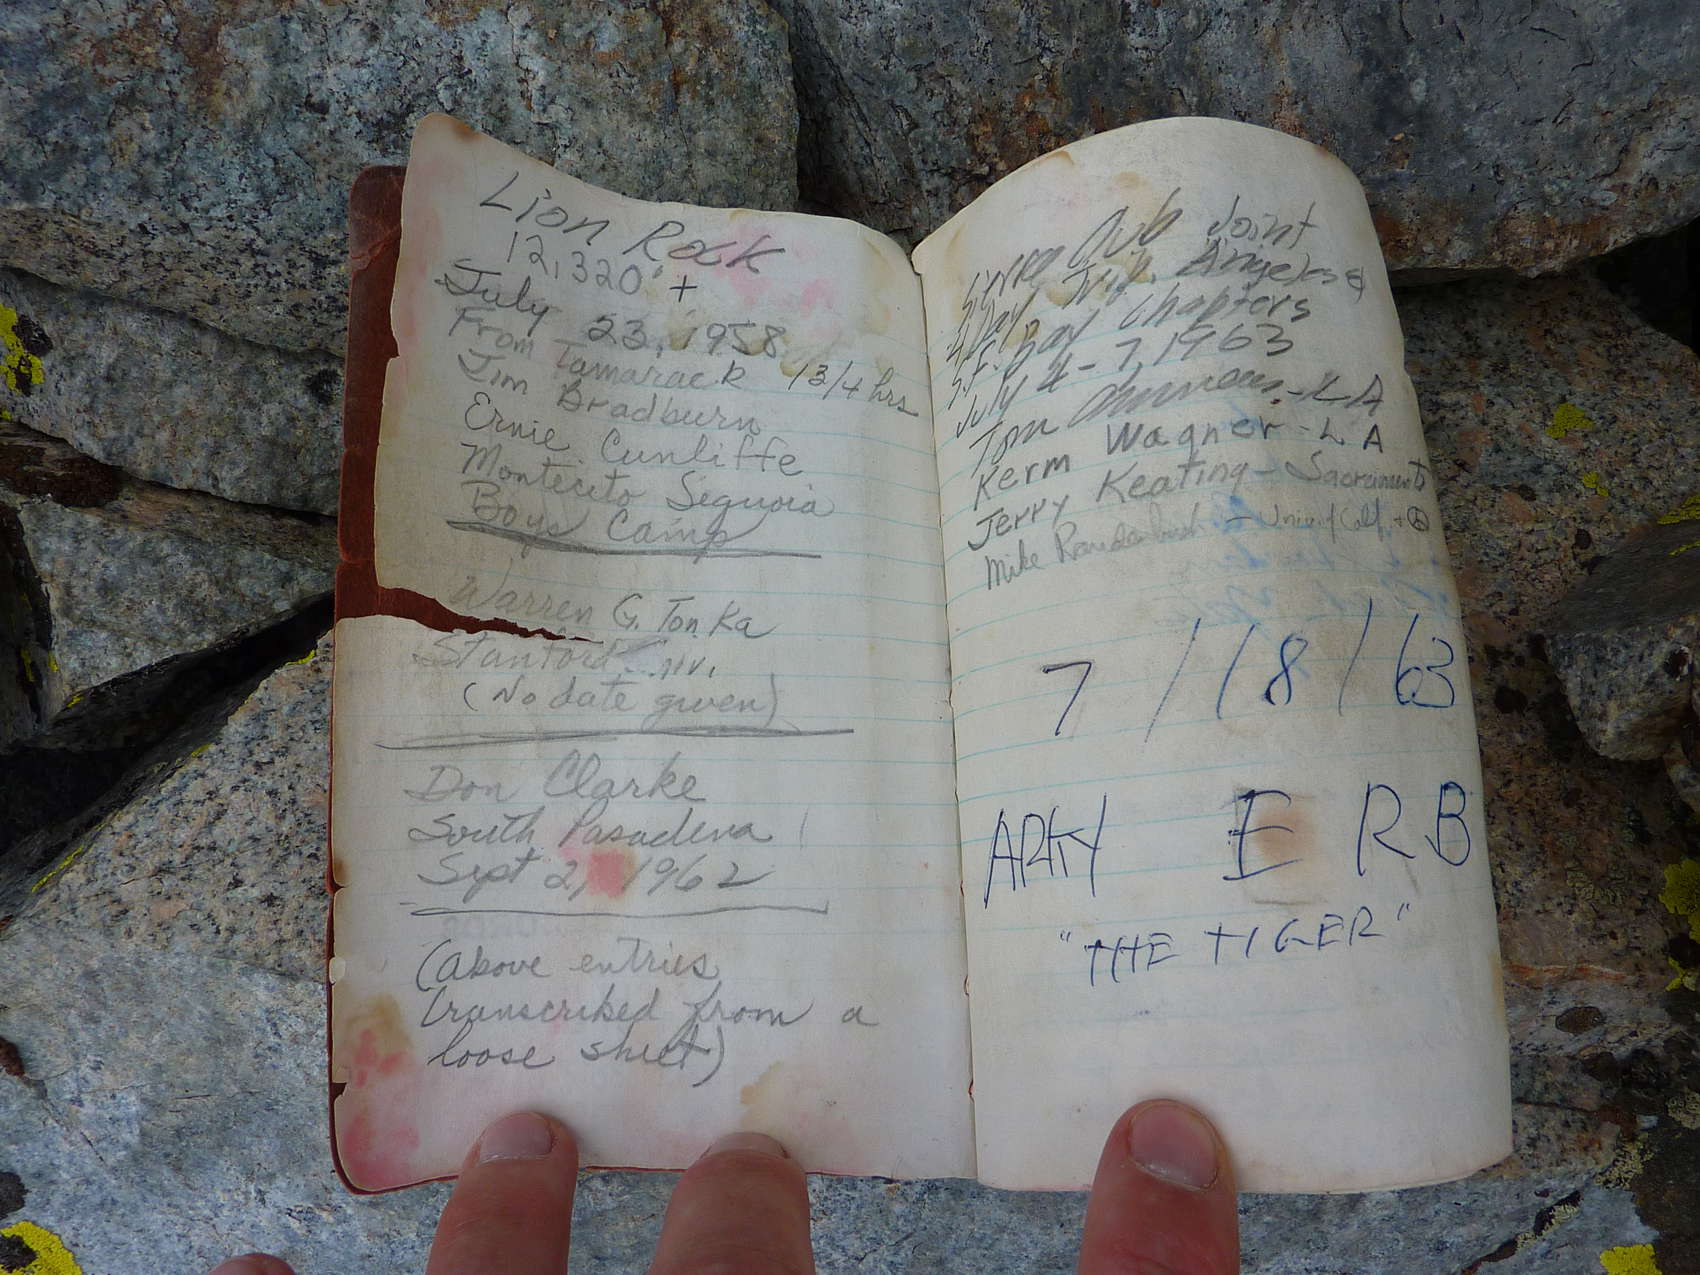 Lion Rock
12,320' +
July 23, 1958
From Tamarack 1 3/4 hrs
Jim Bradburn
Ernie Cunliffe
Montecito Sequoia
Boys Camp
Warren G. Tonka
Stanford Univ.
(No date given)
Don Clarke
South Pasadena
Sept 2, 1962
(above entries
transcribed from a
loose sheet)
Sierra Club Joint
4 day Trip. Angeles &
S.F. Bay Chapters
July 4-7, 1963
Tom - LA
Kerm Wagner - LA
Jerry Keating - Sacramento
Mike Raudenbush - Univ of Calif. +
7/18/63
ARKY ERB
"THE TIGER"